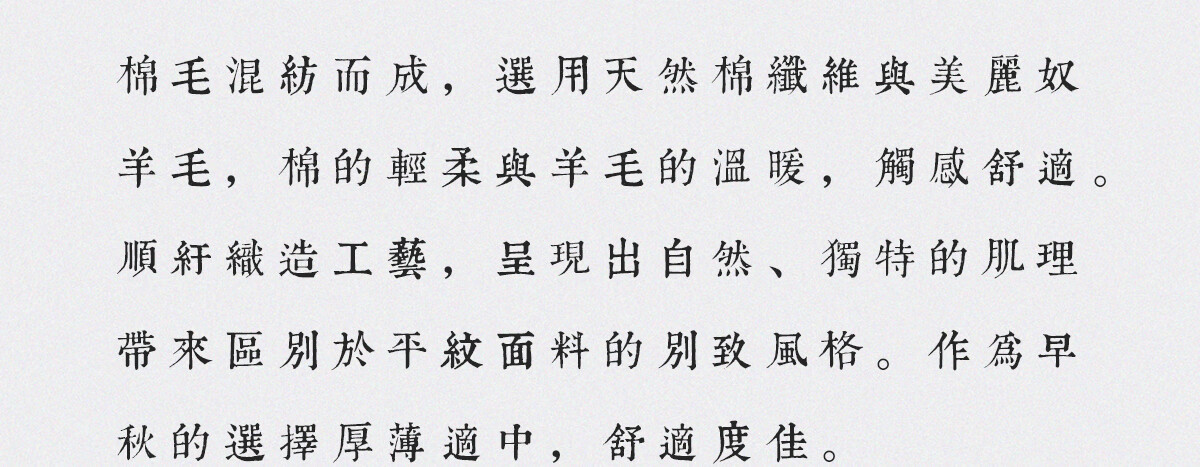 棉毛混紡而成，選用天然棉纖維與美麗奴
羊毛，棉的輕柔與羊毛的溫暖，觸感舒適。
順紆織造工藝，呈現出自然、獨特的肌理
帶來區別於平紋面料的別致風格。作為早
秋的選擇厚薄適中，舒適度佳。